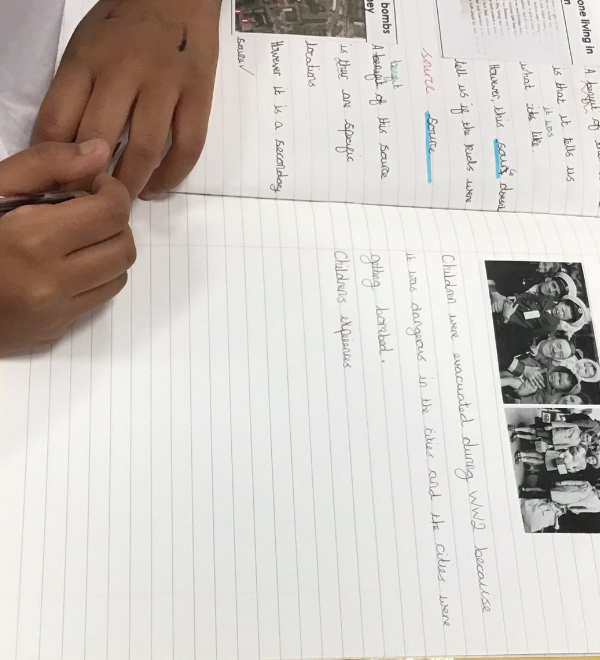 one living in
n
A benefit of
is that it tells us
it was
what its like.
However, this doesnt
tell us if the kids were
source source
bombs
ey
benefit
A benefit of this source
is ther are specific
locations
However it is a secondary
source
Children were evacuated during WW2 because
it was dangrous in the cities and the cities were
getting bombed.
Childrens